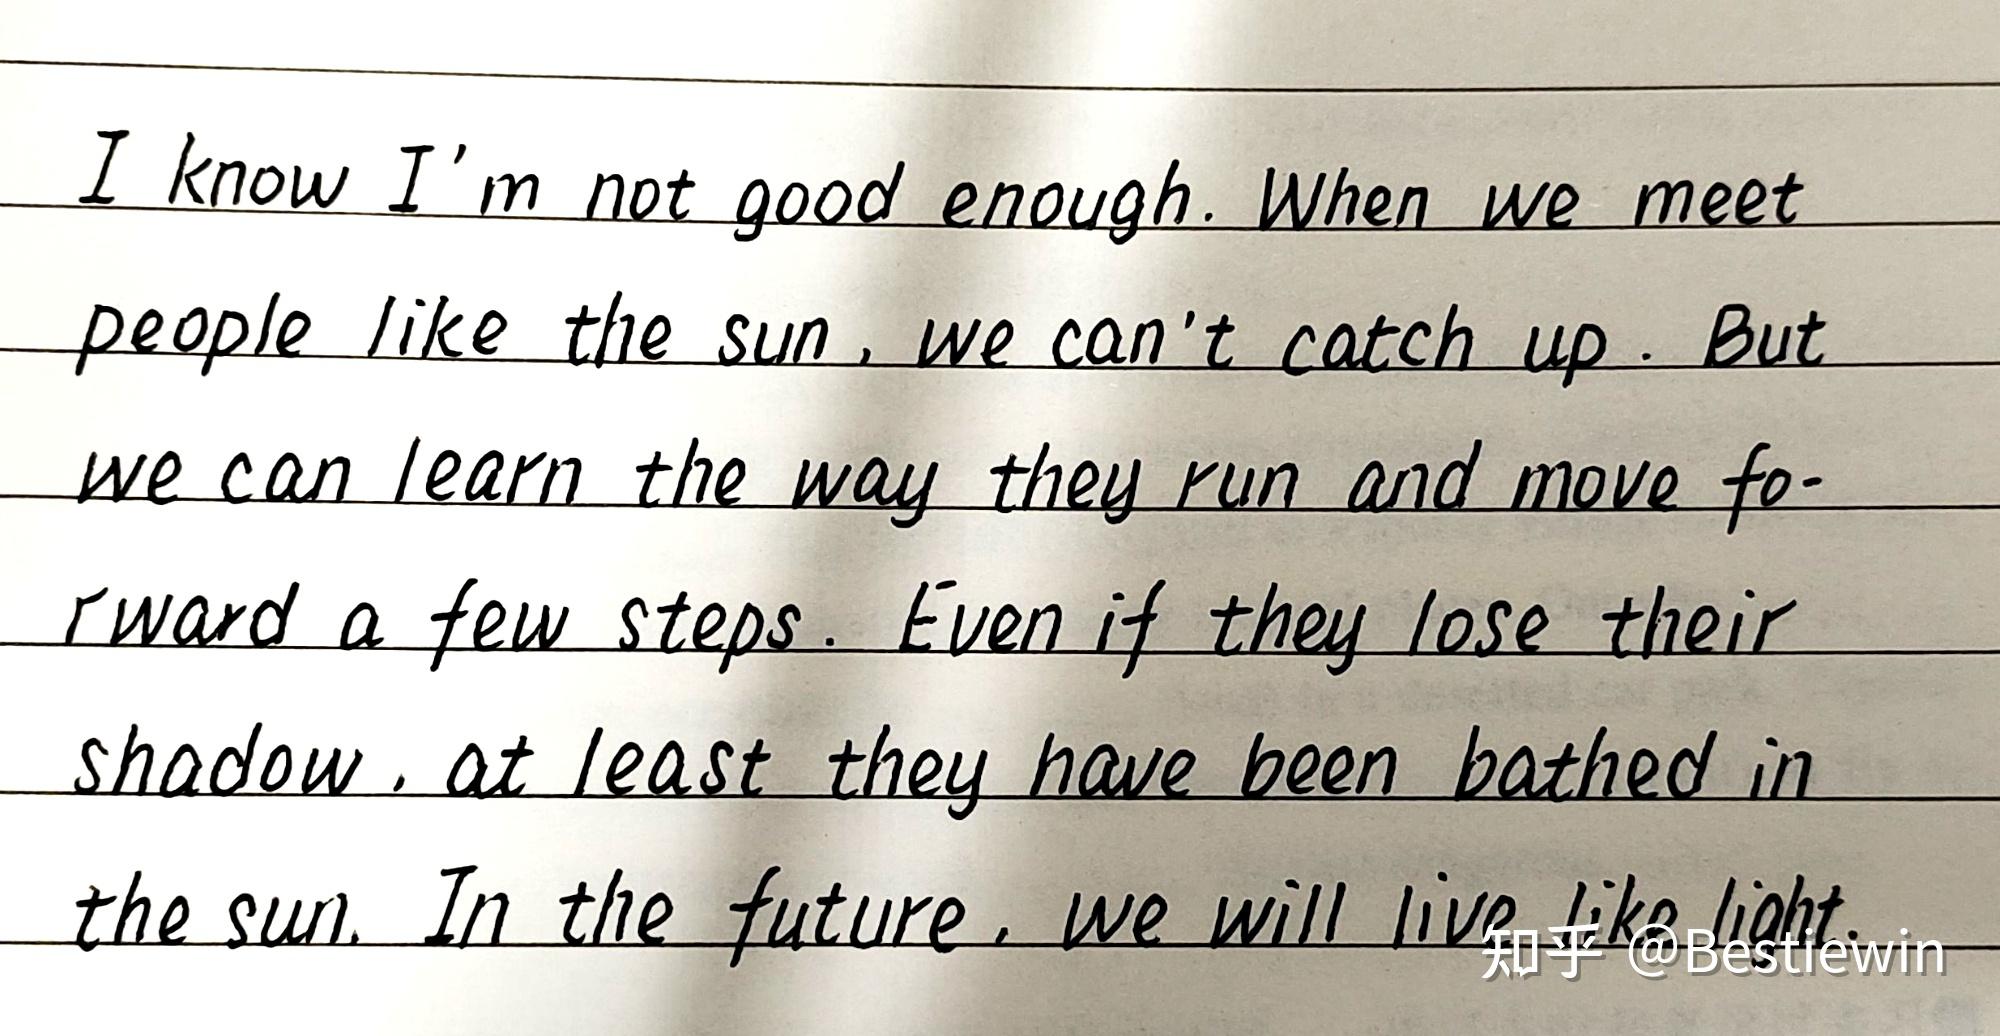 I know I'm not good enough. When we meet
people like the sun, we can't catch up. But
we can learn the way they run and move fo-
rward a few steps. Even if they lose their
shadow, at least they have been bathed in
the sun. In the future, we will live like light.
知乎 @Bestiewin